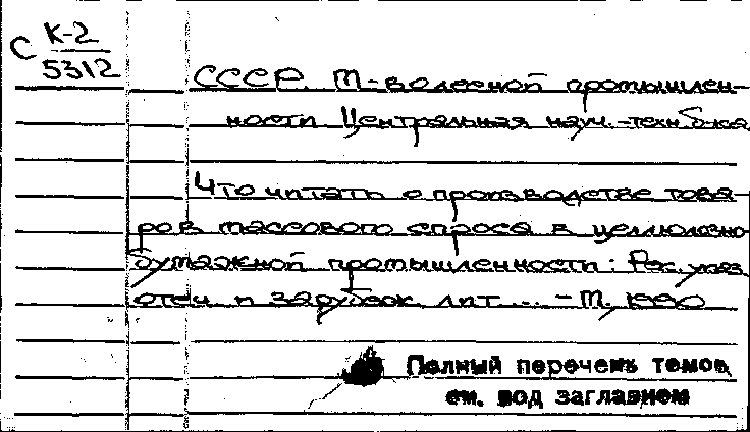 С К-2
5312
СССР. М-во лесной промышлен-
ности. Центральная науч.-техн. б-ка
Что читать о производстве това-
ров массового спроса в целлюлозно-
бумажной промышленности: Рек. указ.
отеч. и зарубеж. лит. ... - М., 1990
Полный перечень томов
см. под заглавием